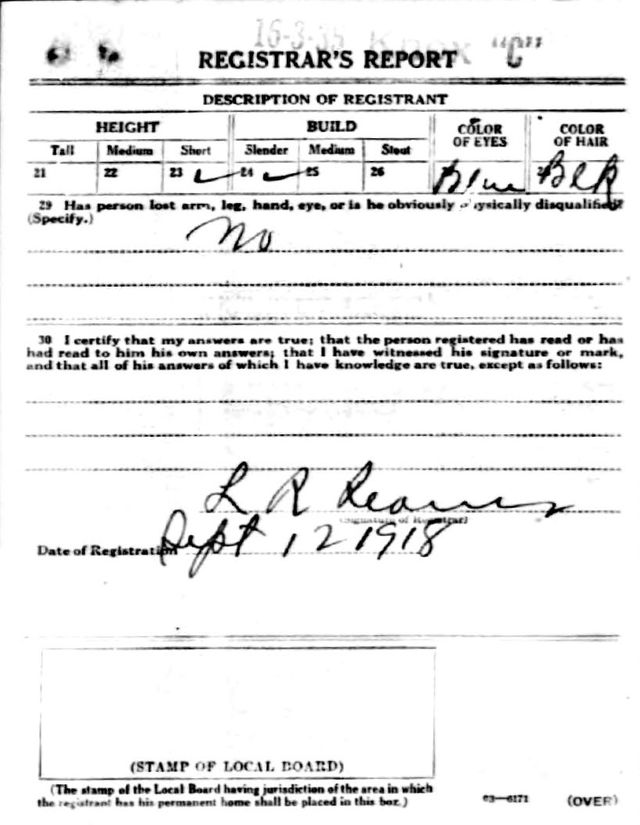 16-3-35 Knox "C"
REGISTRAR'S REPORT
DESCRIPTION OF REGISTRANT
HEIGHT BUILD COLOR OF EYES COLOR OF HAIR
Tall Medium Short Slender Medium Stout
21 22 23 ✓ 24 ✓ 25 26 Blue Blk
29 Has person lost arm, leg, hand, eye, or is he obviously physically disqualified?
(Specify.)
No
30 I certify that my answers are true; that the person registered has read or has
had read to him his own answers; that I have witnessed his signature or mark,
and that all of his answers of which I have knowledge are true, except as follows:
L R
(Signature of Registrar)
Date of Registration Sept 12 1918
(STAMP OF LOCAL BOARD)
(The stamp of the Local Board having jurisdiction of the area in which
the registrant has his permanent home shall be placed in this box.)
03—6171 (OVER)